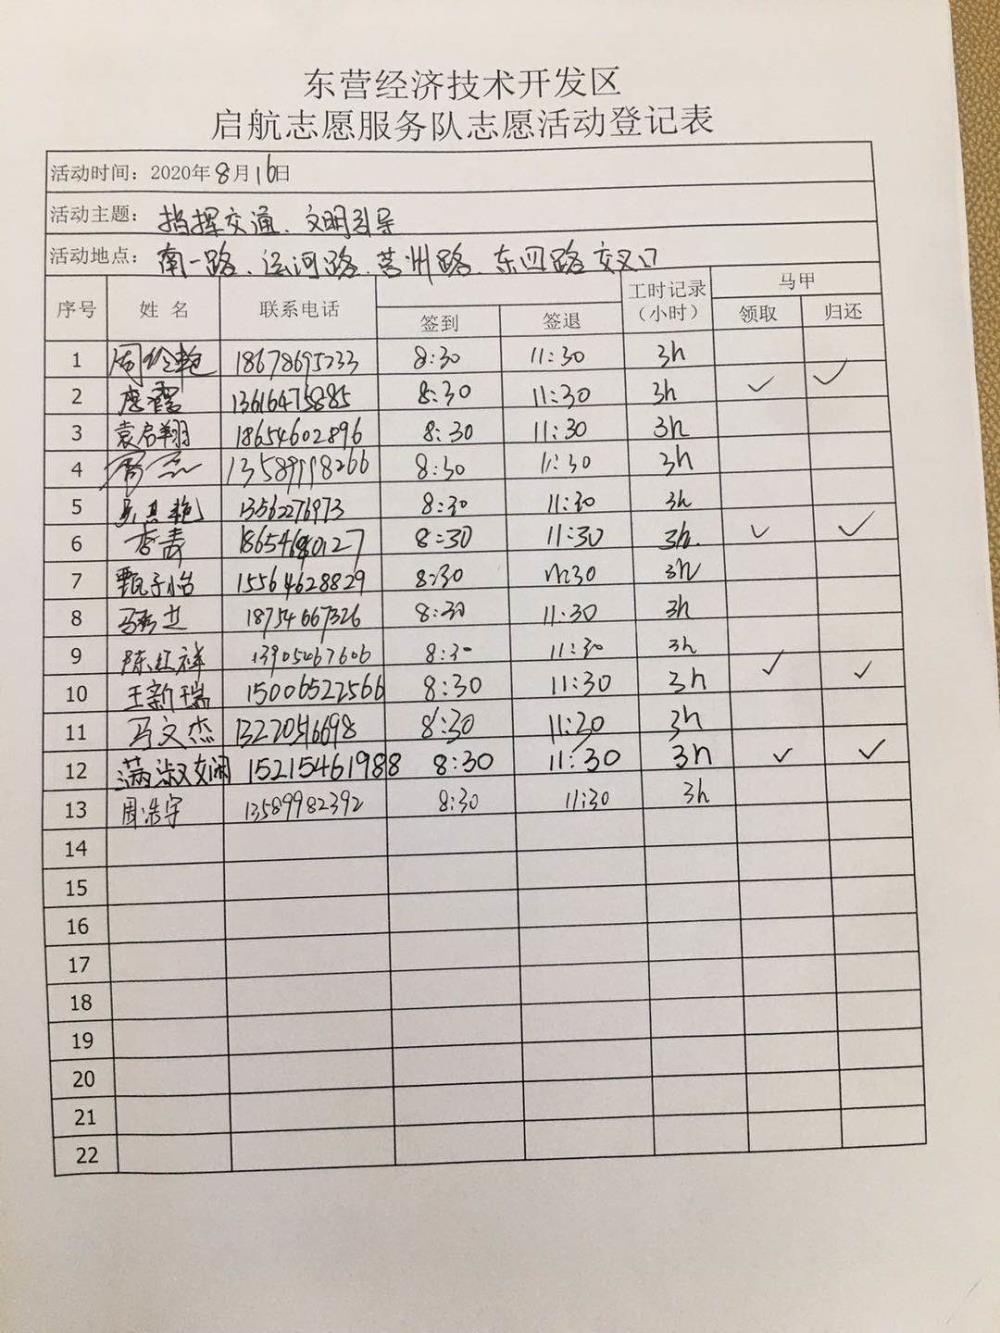 东营经济技术开发区
启航志愿服务队志愿活动登记表
活动时间：2020年8月16日
活动主题：指挥交通、文明引导
活动地点：南一路、运河路、莒州路、东四路交叉口
序号 姓 名 联系电话 签到 签退 工时记录（小时） 马甲 领取 归还
1 18678695233 8:30 11:30 3h
2 唐霞 13616475885 8:30 11:30 3h ✓ ✓
3 袁启翔 18654602896 8:30 11:30 3h
4 13589998266 8:30 11:30 3h
5 13562276973 8:30 11:30 3h
6 李涛 8:30 11:30 3h. ✓ ✓
7 甄子怡 15564628829 8:30 11:30 3h
8 18754667326 8:30 11:30 3h
9 陈红祥 13905467606 8:30 11:30 3h
10 王新瑞 15006522566 8:30 11:30 3h ✓ ✓
11 马文杰 8:30 11:30 3h
12 满淑娴 15215461988 8:30 11:30 3h ✓ ✓
13 周浩宇 13589982392 8:30 11:30 3h
14
15
16
17
18
19
20
21
22